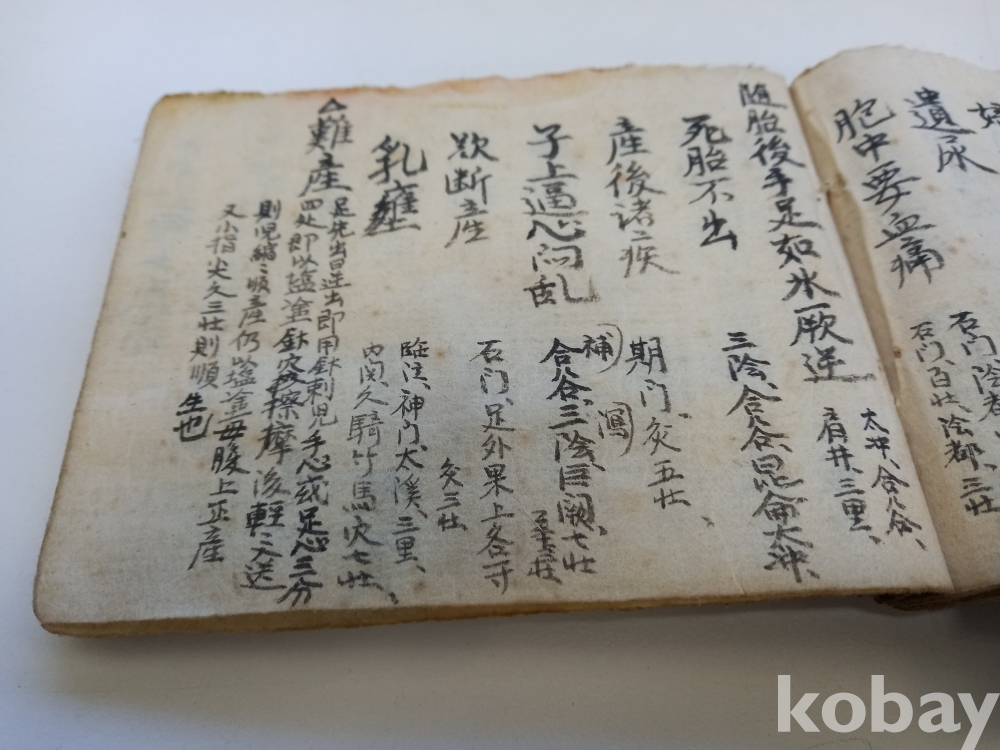 遺尿
石门、陰都、
胞中要血痛
石门、百壮、陰都、三壮
隨胎後手足如氷一厥逆
太冲、合谷、
肩井、三里、
死胎不出
三陰、合谷、昆侖、太冲、
産後諸疾
期门、灸五壮、
子上逼心闷乱
補 瀉
合谷、三陰、巨阙、七壮
欲断産
石门、足外果上各寸
灸三壮
乳癰
臨泣、神门、太溪、三里、
内関久騎竹馬穴七壮、
△難産
足先出曰逆出即用針刺児手心或足心三分
四処即以塩塗針穴擦摩後輕々入送
則児縮々順産仍以塩塗母腹上正産
又小指尖久三壮則順生也
kobay